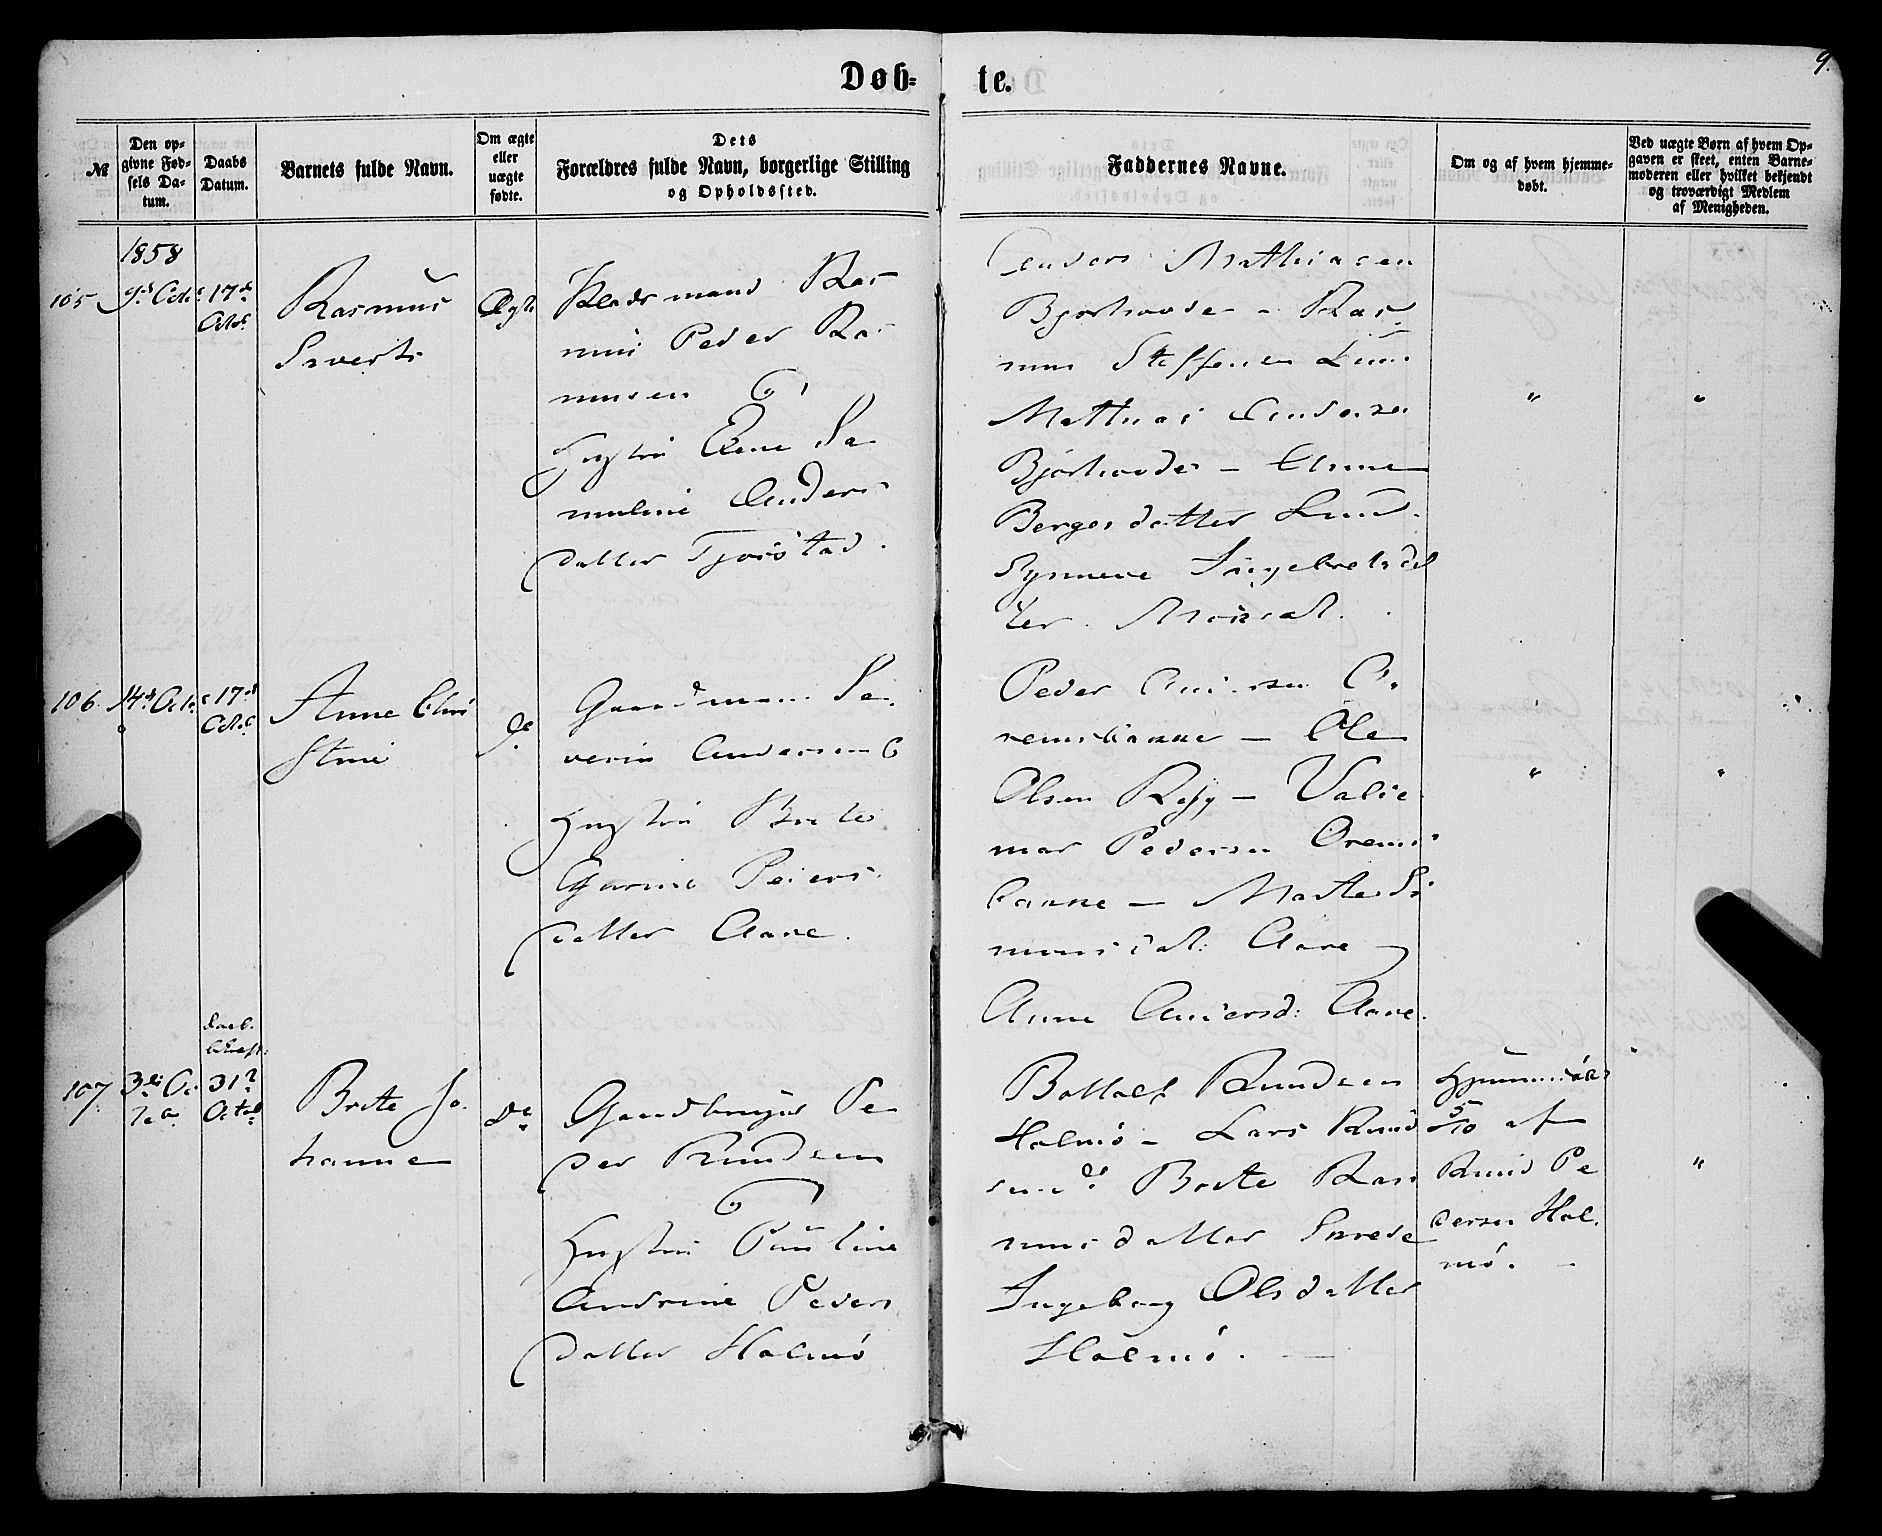 Døb-
te.
9.
№
Den op-
givne Fød-
sels Da-
tum.
Daabs
Datum.
Barnets fulde Navn.
Om ægte
eller
uægte
fødte.
Dets
Forældres fulde Navn, borgerlige Stilling
og Opholdssted.
Faddernes Navne.
Om og af hvem hjemme-
døbt.
Ved uægte Børn af hvem Op-
gaven er skeet, enten Barne-
moderen eller hvilket bekjendt
og troværdigt Medlem
af Menigheden.
1858
105
9d Octr
17d
Octbr
Rasmus
Sivert
Ægte
Pladsmand Ras
mus Peder Ras
musen &
Hustru Ane Sa
muline Anders
datter Tjøvstad.
Anders Mathiasen
Bjørhovde - Ras
mus Steffensen Lund
Mathias Andersen
Bjørhovde - Anne
Bergesdatter Lund.
Synneve Ingebretsdat
ter
"
"
106
14d Octr
17d
Octbr
Anne Chri
stine
de
Gaardmand Se
verin Andersen &
Hustru Brite
Gurine Peders
datter Aare.
Peder Andersen O
remsbakke - Ole
Olsen - Valde
mar Pedersen Orems
bakke - Marte Si
monsdat: Aare
Anne Andersd: Aare.
"
"
107
3die Oc
tob.
Daab.
bekræft:
31t
Octob
Brite Jo
hanne
de
Gaardbruger Pe
der Knudsen
&
Hustru Pauline
Andrine Peders
datter Holmø
Bottolf Knudsen
Holmø - Lars Knud
sen ds Brite Ras
musdatter
Ingeborg Olsdatter
Holmø. —
Hjemmedøbt
5/10 af
Knud Pe
dersen Hol
mø. -
"